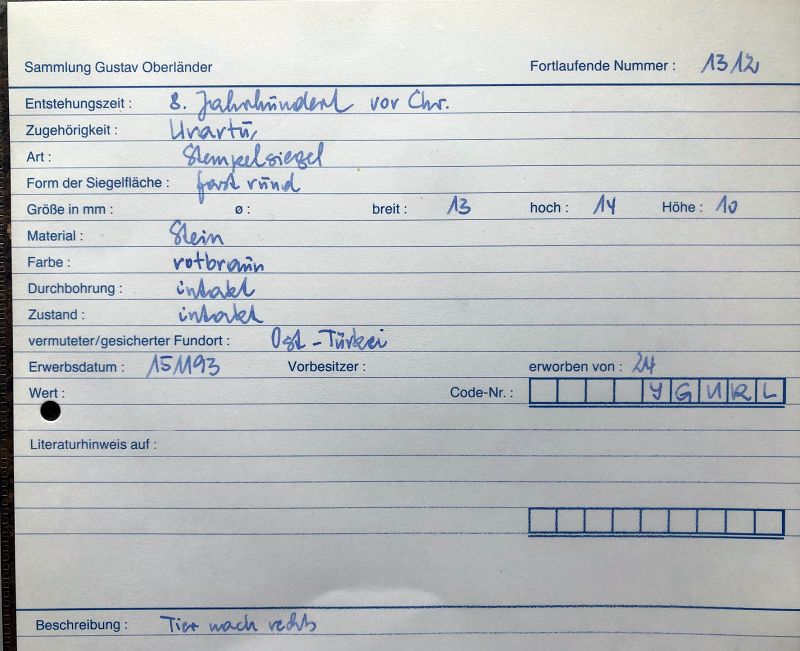 Sammlung Gustav Oberländer Fortlaufende Nummer : 1312
Entstehungszeit : 8. Jahrhundert vor Chr.
Zugehörigkeit : Urartu,
Art : Stempelsiegel
Form der Siegelfläche : fast rund
Größe in mm : ø : breit : 13 hoch : 14 Höhe : 10
Material : Stein
Farbe : rotbraun
Durchbohrung : intakt
Zustand : intakt
vermuteter/gesicherter Fundort : Ost-Türkei
Erwerbsdatum : 151193 Vorbesitzer : erworben von : 24
Wert : Code-Nr. : YGURL
Literaturhinweis auf :
Beschreibung : Tier nach rechts